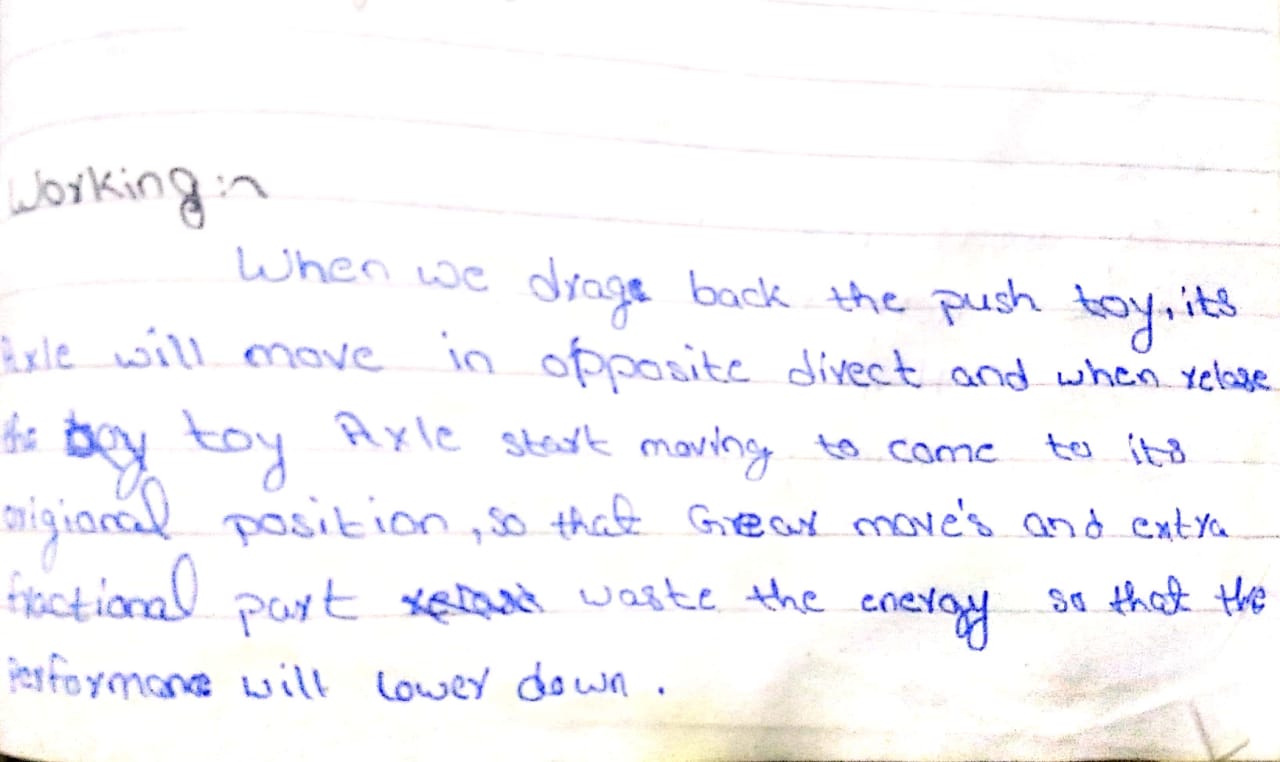 Working :~
When we drage back the push toy, its
Axle will move in opposite direct and when relase
the toy toy Axle start moving to come to its
origional position, so that Grear move's and extra
fractional part waste the energy so that the
Performance will lower down.